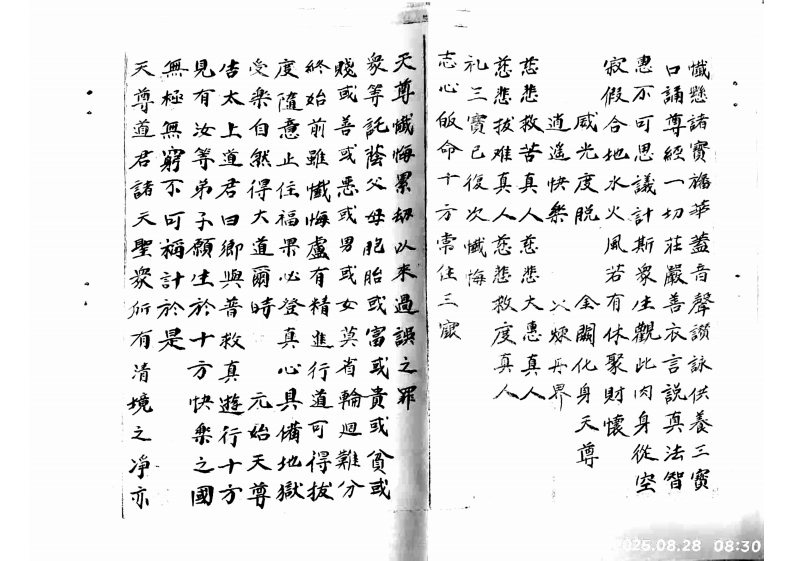 懺懸諸寶旛華蓋音聲讚詠供養三寶
口誦尊經一切莊嚴善衣言說真法智
惠不可思議計斯衆生觀此肉身從空
寂假合地水火風若有休聚財懷
威光度脱　　金闕化身天尊
逍遥快樂　　火煉丹界
慈悲救苦真人　慈悲大惠真人
慈悲拔难真人　慈悲救度真人
礼三寶已復次懺悔
志心皈命十方常住三寳
天尊懺悔累劫以來過誤之罪
衆等託蔭父母胞胎或富或貴或貧或
賤或善或惡或男或女莫省輪迴難分
終始前雖懺悔盧有精進行道可得拔
度隨意止住福果必登真心具備地獄
受樂自然得大道爾時　元始天尊
告太上道君曰卿與普救真遊行十方
見有汝等弟子願生於十方快樂之國
無極無窮不可稱計於是
天尊道君諸天聖衆所有清境之净亦
2025.08.28 08:30